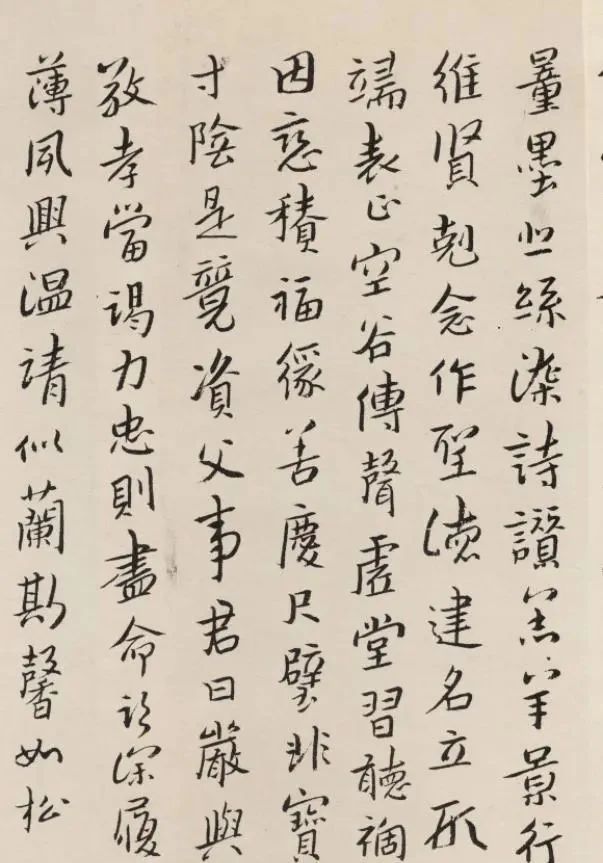 量墨悲絲染詩讚羔羊景行
維賢剋念作聖德建名立形
端表正空谷傳聲虛堂習聽禍
因惡積福緣善慶尺璧非寶
寸陰是競資父事君曰嚴與
敬孝當竭力忠則盡命臨深履
薄夙興温請似蘭斯馨如松